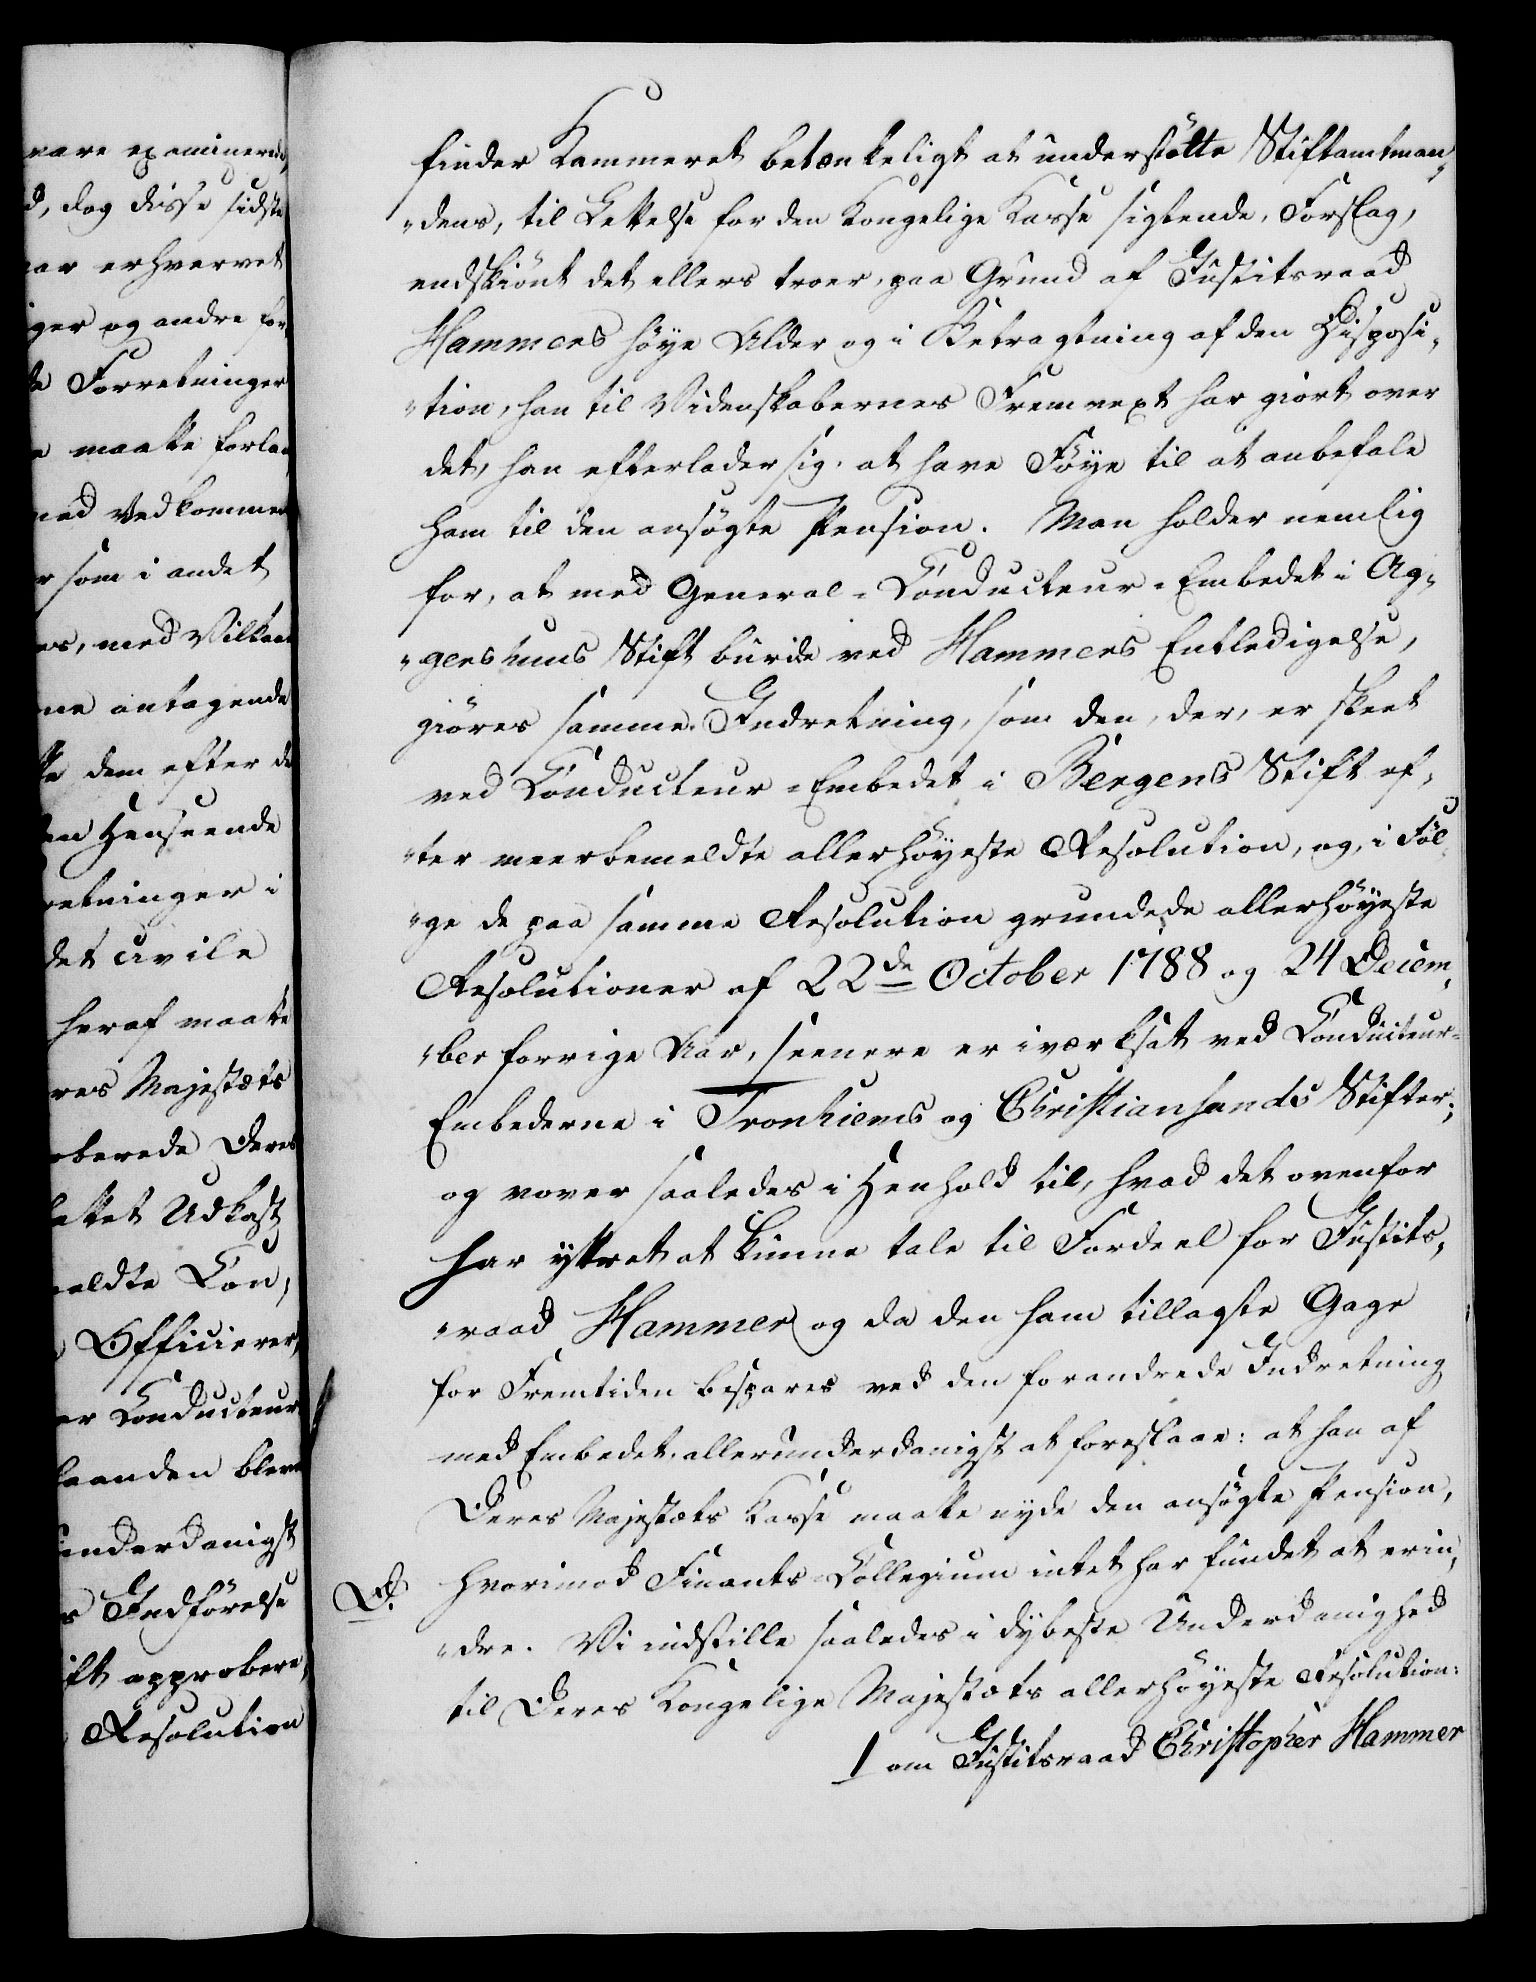 vare examinerede,
d, dog disse sidste
aar erhvervet
iger og andre for,
de Forretninger
e maatte forlan,
med Vedkommen
er som i andet
es, med Vilkaar
ne antagende
dem efter de
den Henseende
retninger i
det civile
heraf maatte
res Majestæts
oberede Deres
fattet Udkast
meldte Con,
Officierer,
er Conducteur
standen bleve
underdanigst
s Indførelse
ift approbere,
Resolution
finder Kammeret betænkeligt at understøtte Stiftamtman„
„dens, til Lettelse for den Kongelige Kasse sigtende, Forslag,
endskiønt det ellers troer, paa Grund af Justitsraad
Hammers høye Alder og i Betragtning af den Disposi„
„tion, han til Videnskabernes Fremvext har giort over
det, han efterlader sig, at have Føye til at anbefale
ham til den ansøgte Pension. Man holder nemlig
for, at med General-Conducteur-Embedet i Ag„
„gershuus Stift burde ved Hammers Entledigelse,
giøres samme Indretning, som den, der, er skeet
ved Conducteur-Embedet i Bergens Stift ef„
„ter meerbemeldte allerhøyeste Resolution, og, i Føl„
„ge de paa samme Resolution grundede allerhøyeste
Resolutioner af 22de October 1788 og 24 Decem„
„ber forrige Aar, seenere er iværksat ved Conducteur-
Embederne i Tronhiems og Christiansands Stifter;
og vover saaledes i Henhold til, hvad det ovenfor
har yttret at kunne tale til Fordeel for Justits„
„raad Hammer og da den ham tillagte Gage
for Fremtiden bespares ved den forandrede Indretning
med Embedet, allerunderdanigst at foreslaae: at han af
Deres Majestæts Kasse maatte nyde den ansøgte Pension,
hvorimod Finants-Collegium intet har fundet at erin„
„dre. Vi indstille saaledes i dybeste Underdanighed
til Deres Kongelige Majestæts allerhøyeste Resolution:
1 om Justitsraad Christopher Hammer